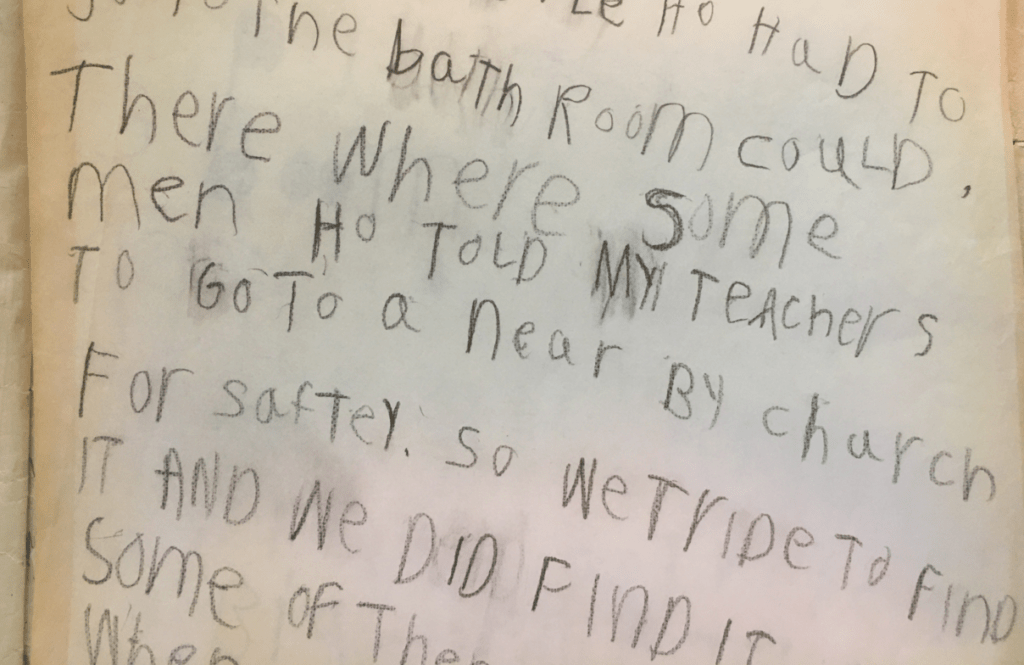 Ho HaD TO
The baTTh Room couLD,
There Where Some
men Ho ToLD MY TeAchers
To Go To a near By church
For safTey. so We TrIDe To FinD
IT AND We DID FInD IT
Some oF
When